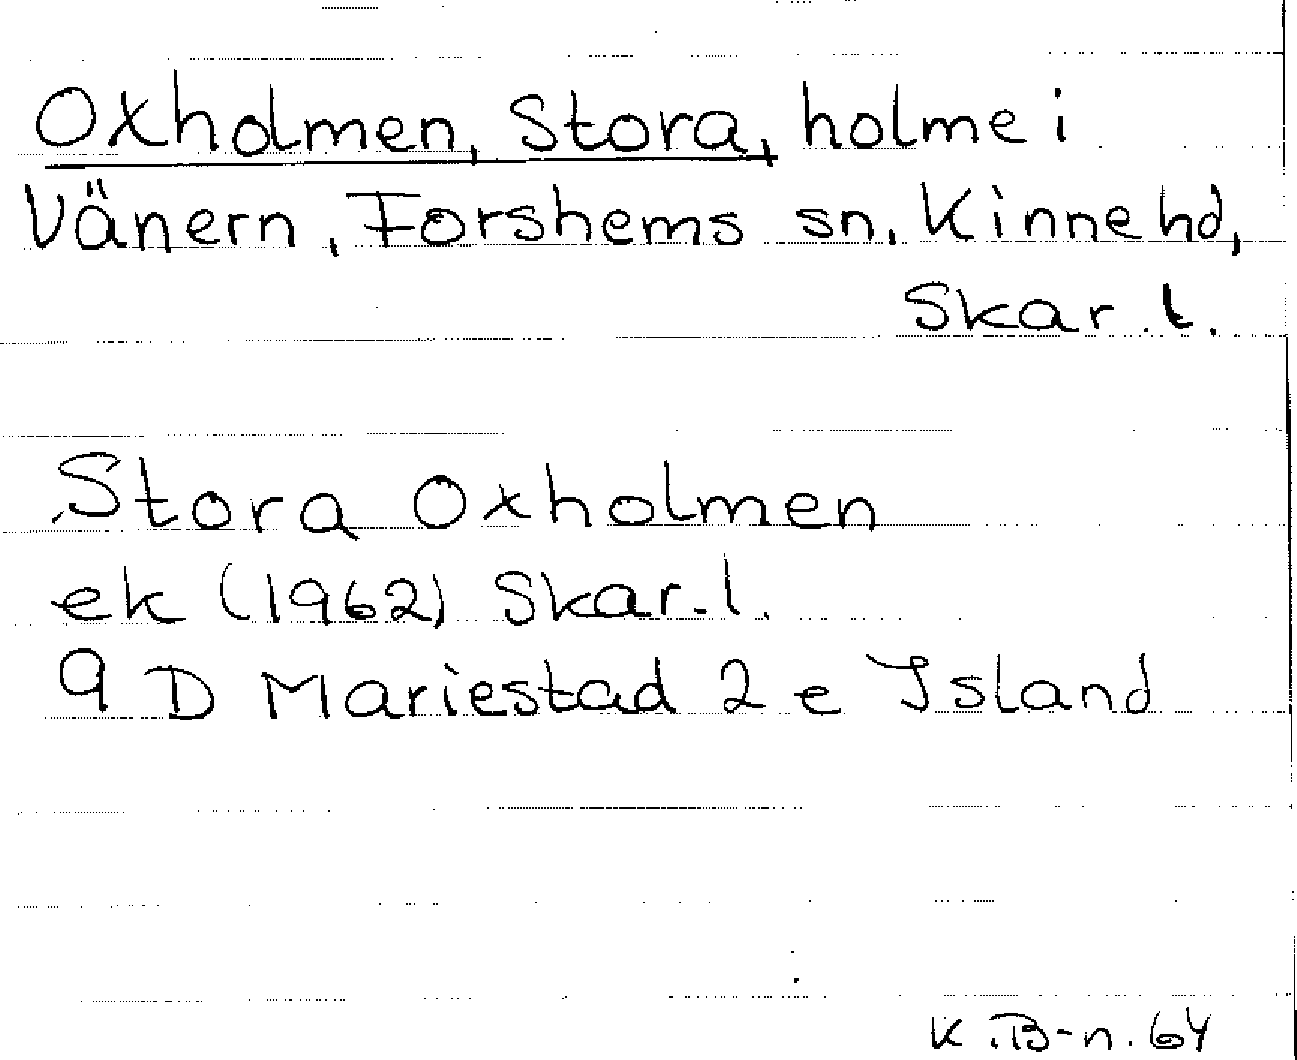 Oxholmen, Stora, holme i
Vänern, Forshems sn, Kinne hd,
Skar. l.
Stora Oxholmen
ek (1962) Skar. l.
9 D Mariestad 2 e Island
K. B-n. 64